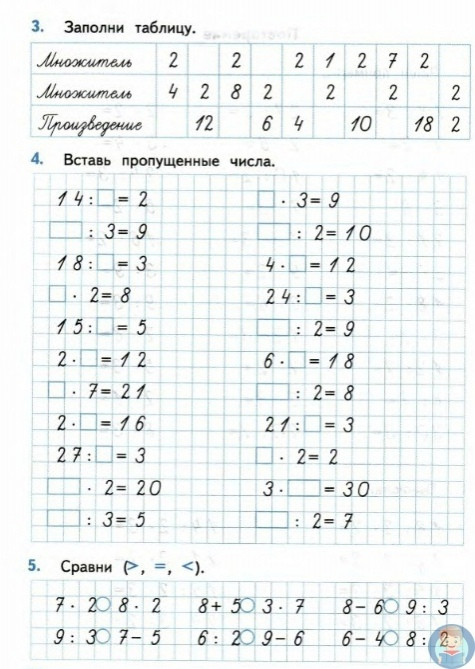 3. Заполни таблицу.
Множитель 2 2 2 1 2 7 2
Множитель 4 2 8 2 2 2 2
Произведение 12 6 4 10 18 2
4. Вставь пропущенные числа.
14:□=2 □·3=9
□:3=9 □:2=10
18:□=3 4·□=12
□·2=8 24:□=3
15:□=5 □:2=9
2·□=12 6·□=18
□·7=21 □:2=8
2·□=16 21:□=3
27:□=3 □·2=2
□·2=20 3·□=30
□:3=5 □:2=7
5. Сравни (>, =, <).
7·2○8·2 8+5○3·7 8-6○9:3
9:3○7-5 6:2○9-6 6-4○8:2